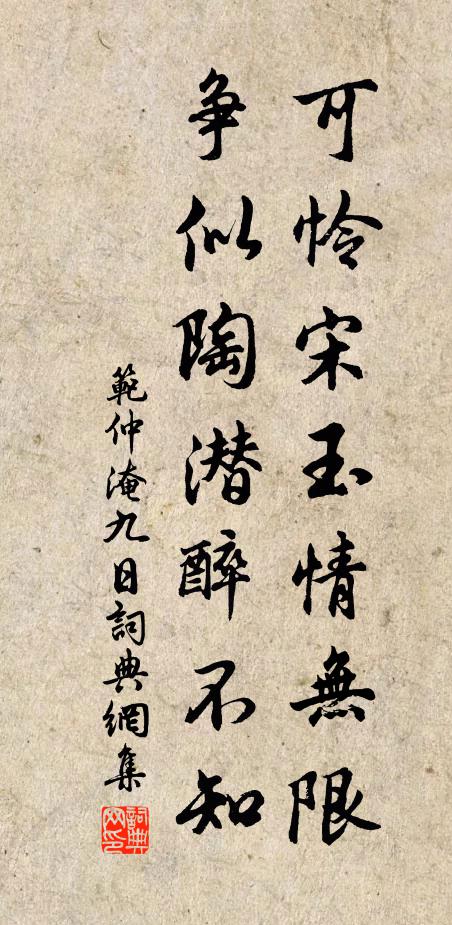 可怜宋玉情無限
争似陶潜醉不知
範仲淹九日詞典網集
詞典网印